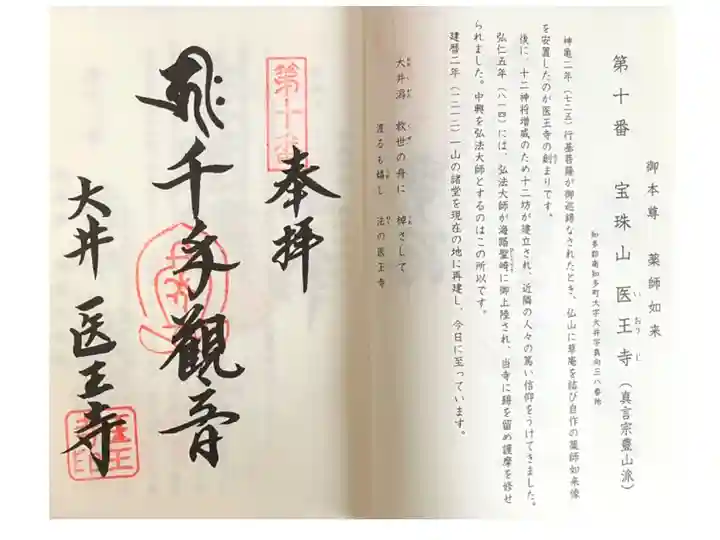 御本尊 薬師如来
第十番 宝珠山 医王寺(真言宗豊山派)
いおうじ
知多郡南知多町大字大井字真向三八番地
神亀二年(七二五)行基菩薩が御巡錫なされたとき、仏山に草庵を結び自作の薬師如来像
を安置したのが医王寺の創まりです。
後に、十二神将増威のため十二坊が建立され、近隣の人々の篤い信仰をうけてきました。
弘仁五年(八一四)には、弘法大師が海路聖崎に御上陸され、当寺に錫を留め護摩を修せ
られました。中興を弘法大師とするのはこの所以です。
建暦二年(一二一二)一山の諸堂を現在の地に再建し、今日に至っています。
大井潟 救世の舟に 棹さして
渡るも嬉し 法の医王寺
奉拝
第十番
千手観音
大井 医王寺